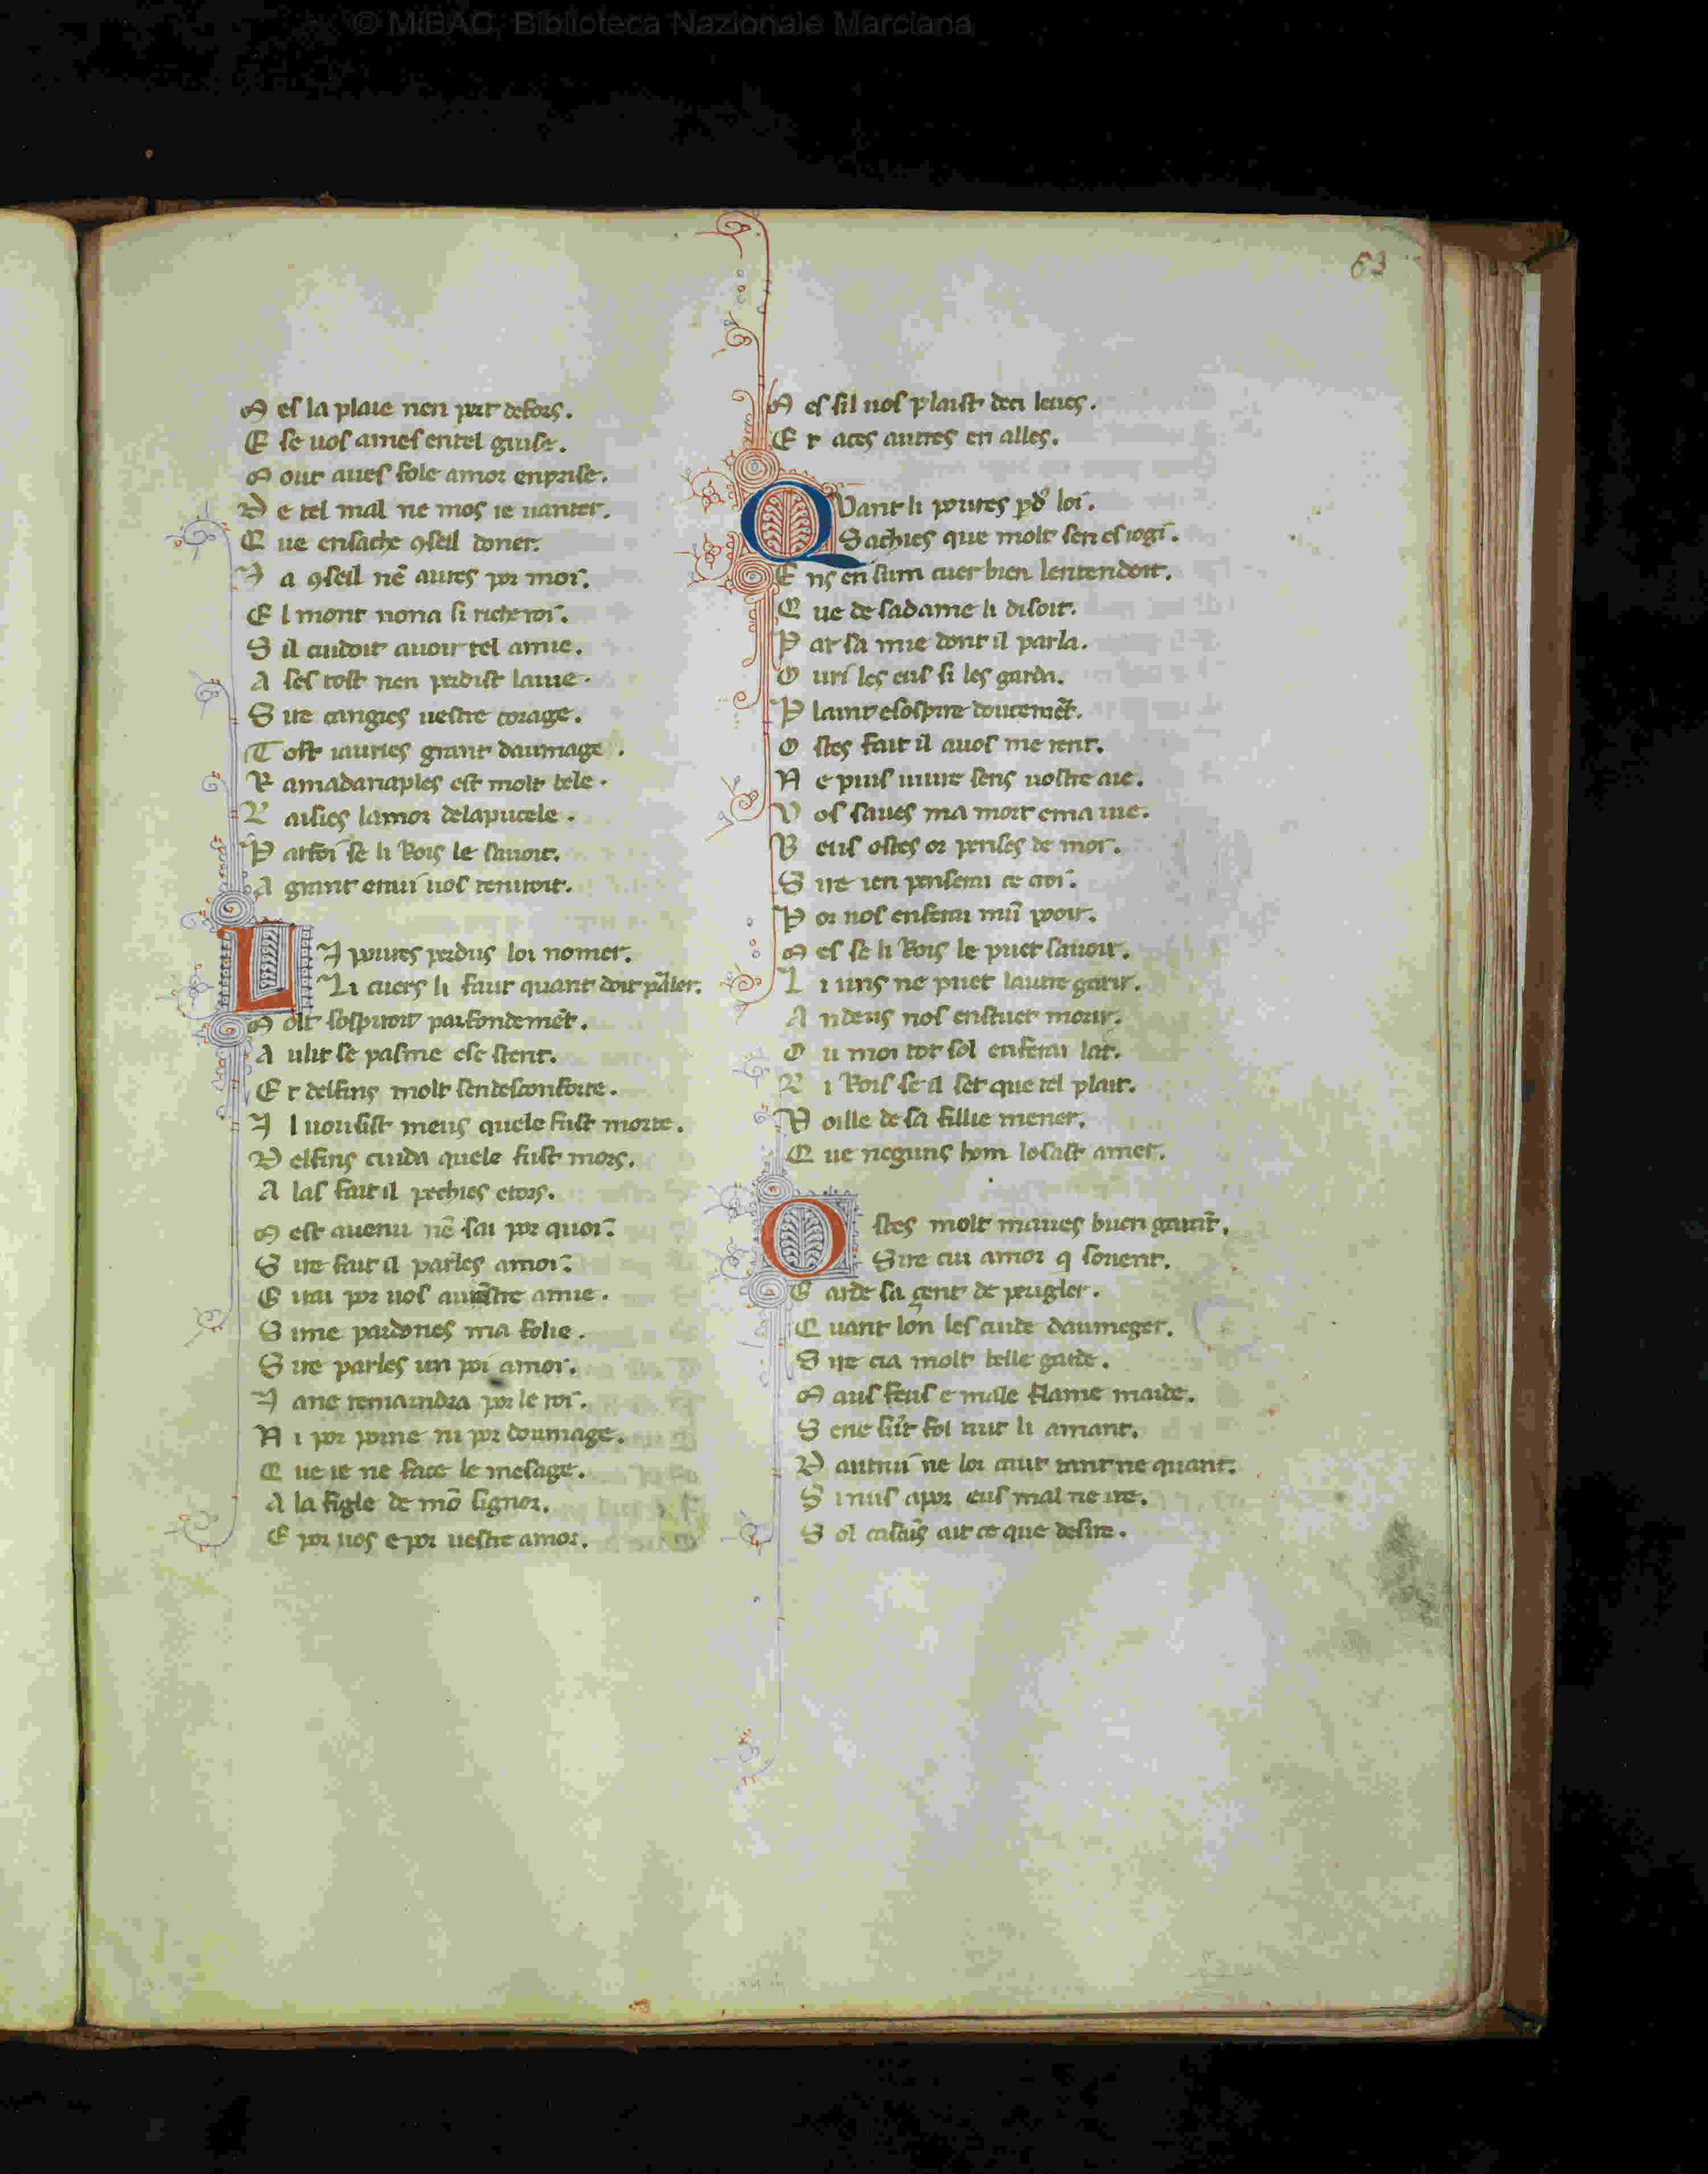 © MiBAC, Biblioteca Nazionale Marciana
63
M es la plaie nen part defors.
E se uos ames entel guise.
M out aues fole amor enprise.
D e tel mal ne mos ie uanter.
Q ue ensache ꝯseil doner.
I a ꝯseil nẽ aures por moi.
E l mont nona si riche roi.
S il cuidoit auoir tel amie.
A ses tost nen perdist lauie.
S ire cangies uestre corage.
T ost iauries grant daumage.
R amadanaples est molt bele.
L aisies lamor delapucele.
P arfoi se li Rois le sauoit.
A grant enui uos tenroit.
L I poures perdus loi nomer.
Li cuers li faut quant doit pãler.
M olt sospiroit parfondemẽt.
A ulit se pasme ese stent.
E t delfins molt sendesconforte.
I l uousist meus quele fust morte.
D elfins cuida quele fust mors.
A las fait il pechies etors.
M est auenu nẽ sai por quoi.
S ire fait il parles amoi.
E irai por uos auestre amie.
S ime pardones ma folie.
S ire parles un poi amoi.
I ane remaindra por le roi.
N i por poine ni por doumage.
Q ue ie ne face le mesage.
A la figle de mõ signor.
E por uos e por uestre amor.
M es sil uos plaist deci leues.
E t aces autres en alles.
Q Vant li poures pd' loi.
Sachies que molt sen esiogi.
E ns en sum cuer bien lentendoit.
Q ue de sadame li disoit.
P ar sa mie dont il parla.
O uri les eus si les garda.
P laint esospire doucemẽt.
O stes fait il auos me rent.
N e puis uiure sens uostre aie.
V os saues ma mort ema uie.
B eus ostes or penses de moi.
S ire ien penserai ce croi.
P or uos enferai mũ pooir.
M es se li Rois le puet sauoir.
L i uns ne puet lautre garir.
A ndeus nos enstuet morir.
O u moi tot sol enferai lat.
L i Rois se il set que tel plait.
V oille de sa fillie mener.
Q ue neguns hom losast amer.
O stes molt maues buen garãt.
Sire cui amor q souent.
G arde sa gent de perigler.
Q uant lon les cuide daumeger.
S ire cia molt belle garde.
M aus feus e male flame maide.
S ene sũt fol tuit li amant.
D autrui ne loi caut tant ne quant.
S inus apor eus mal ne ire.
S ol cascũs ait ce que desire.